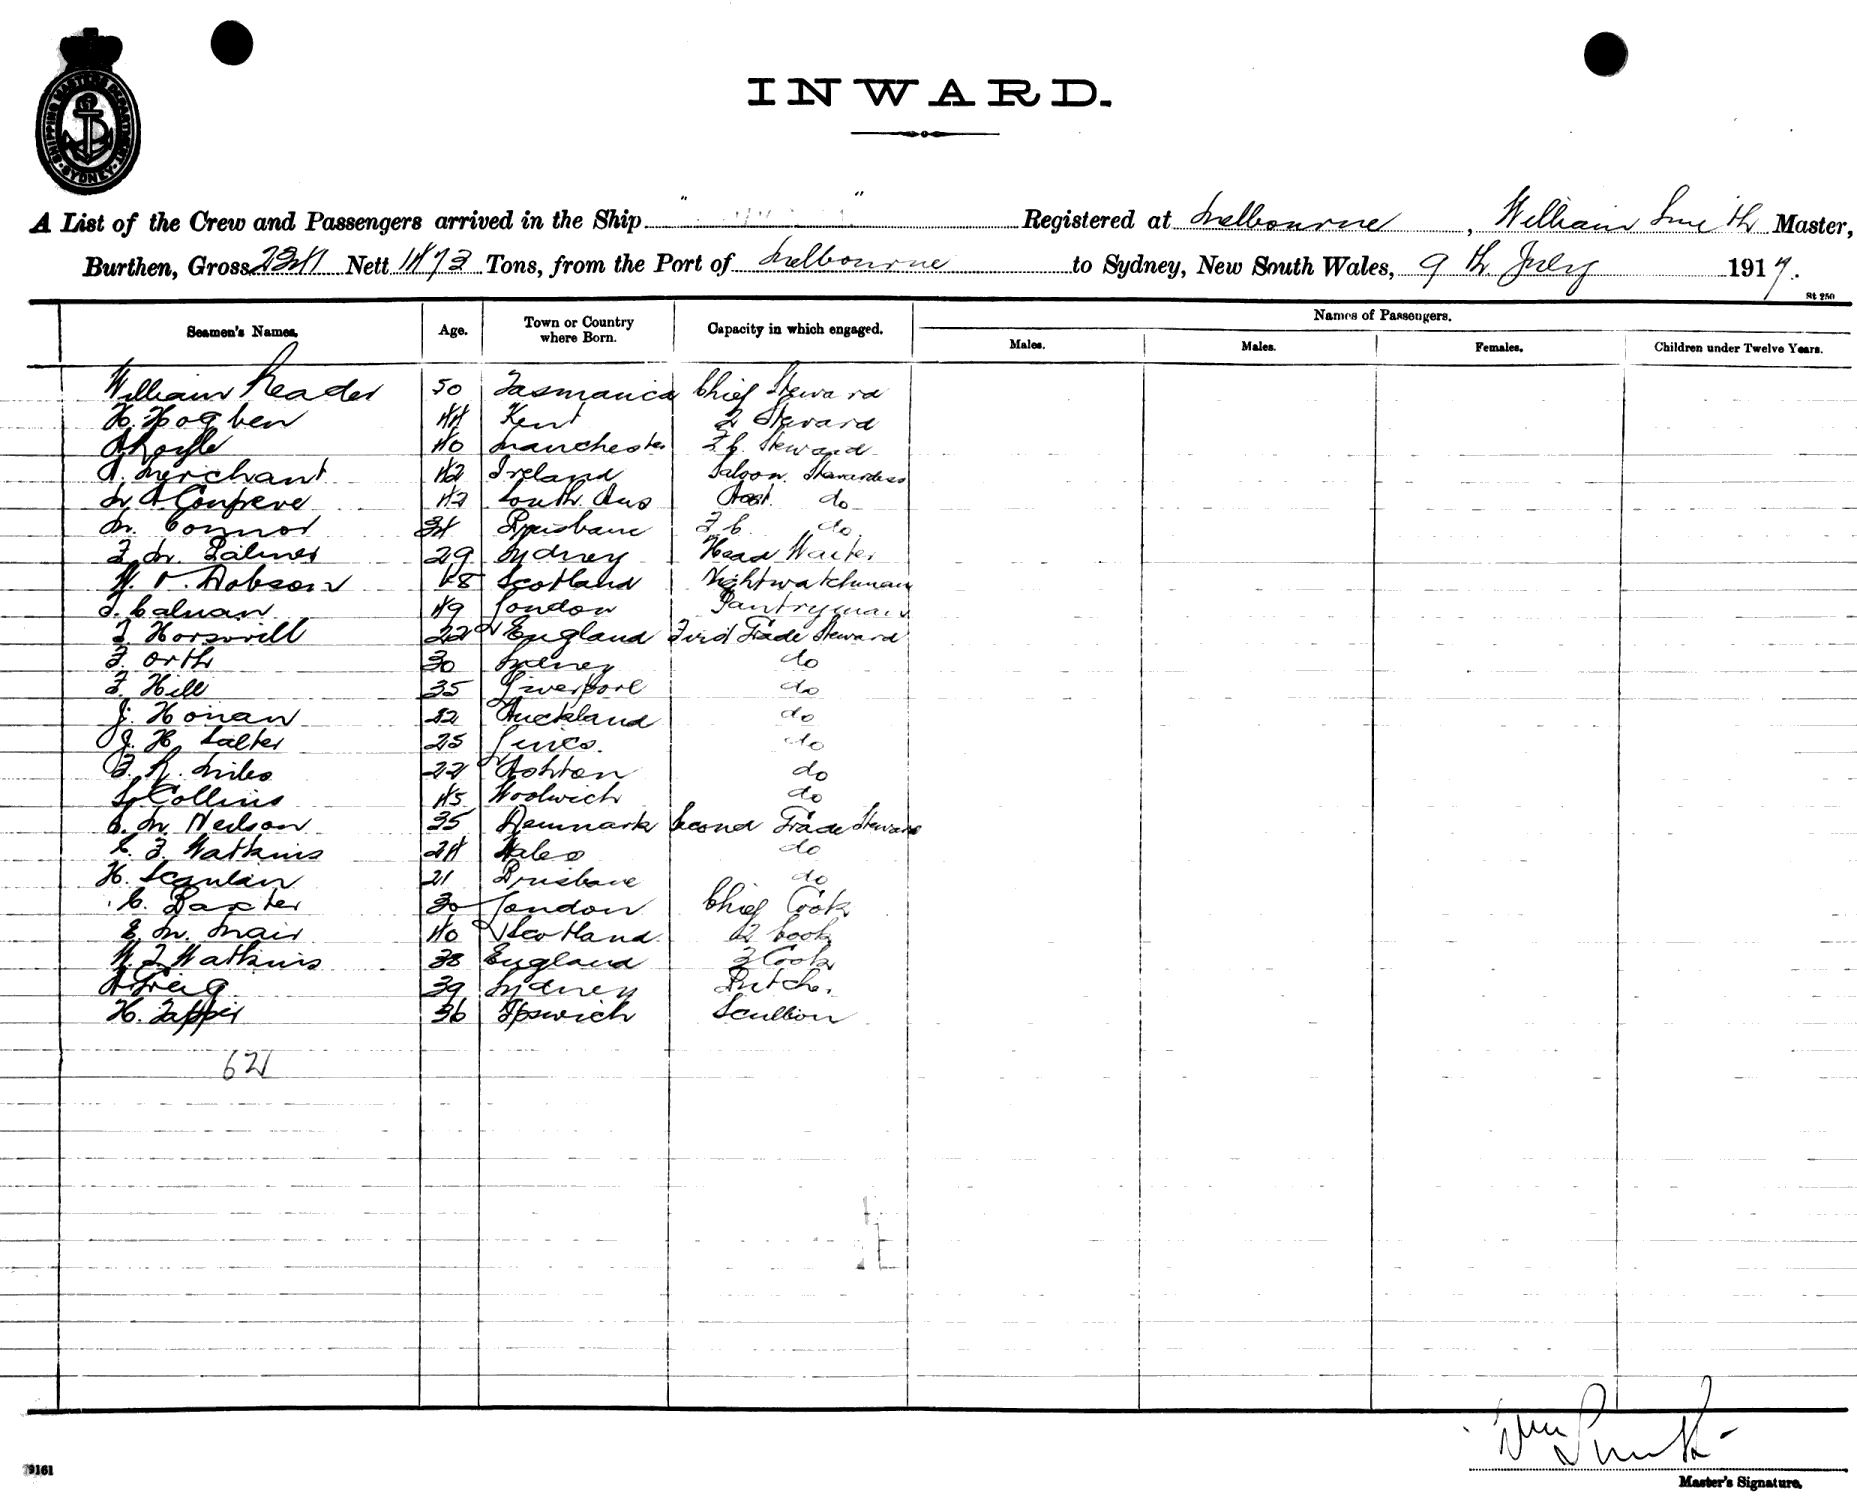 SHIPPING MASTERS DEPARTMENT SYDNEY
INWARD.
A List of the Crew and Passengers arrived in the Ship " " Registered at Melbourne, William Smith Master,
Burthen, Gross Nett 1473 Tons, from the Port of Melbourne to Sydney, New South Wales, 9th July 1917.
St 250
Seamen's Names. Age. Town or Country where Born. Capacity in which engaged. Names of Passengers.
Males. Males. Females. Children under Twelve Years.
William Reader 50 Tasmania Chief Steward
H. Hogben 44 Kent 2 Steward
40 Manchester F.C. Steward
A. Merchant 42 Ireland Saloon Stewardess
M A Congreve 42 South Aus Asst. do
M. Connor 34 Brisbane F C. do
F. M. Palmer 29 Sydney Head Waiter
W. Dobson 48 Scotland Nightwatchman
J. Calnan 49 London Pantryman
T Horswill 22 England First Grade Steward
F. Orth 30 Sydney do
F. Hill 35 Liverpool do
J. Honan 32 Auckland do
J. H Salter 25 Lincs. do
F. R. Miles 22 Ashton do
S. Collins 45 Woolwich do
C. M. Neilson 35 Denmark Second Grade Steward
C. F. Watkins 24 Wales do
H. Scanlan 21 Brisbane do
C. Baxter 30 London Chief Cook
E. M. Mair 40 Scotland 2 Cook
W. F. Watkins 38 England 3 Cook
A Greig 39 Sydney Butcher
H. Tapper 36 Ipswich Scullion
Wm Smith
Master's Signature.